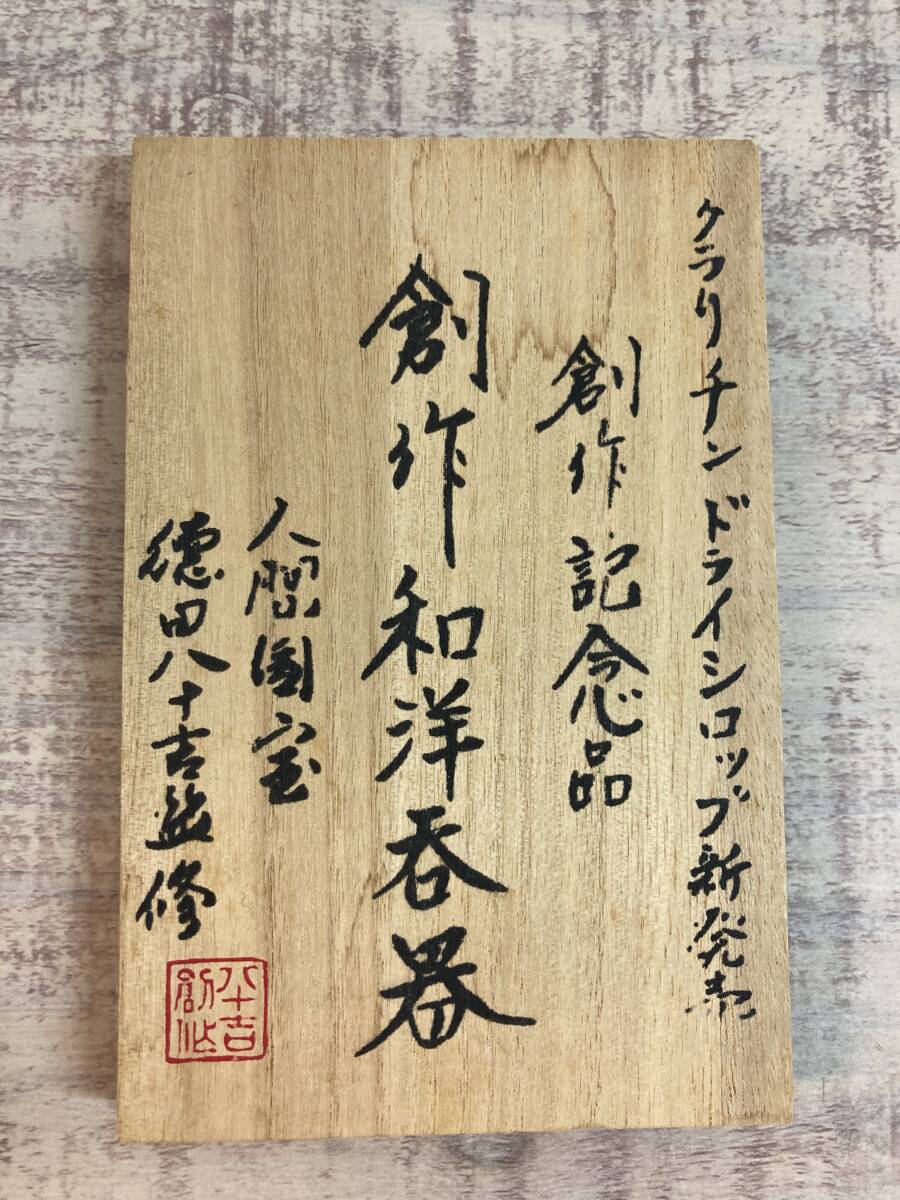 クラリチンドライシロップ新発売
創作記念品
創作和洋吞器
人間国宝
徳田八十吉監修
八十吉
創作